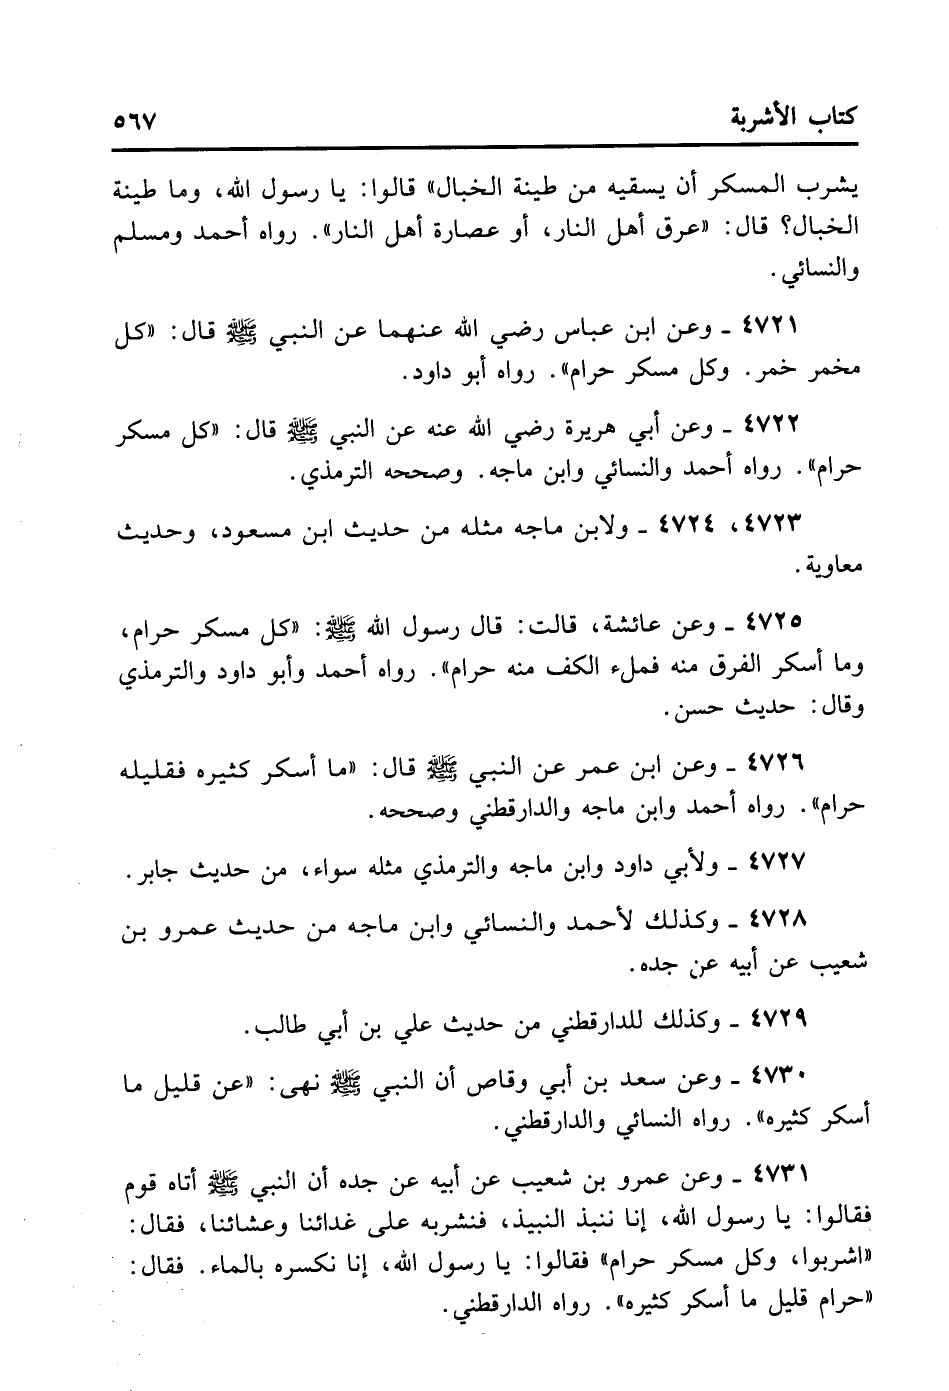 كتاب الأشربة ٥٦٧
يشرب المسكر أن يسقيه من طينة الخبال» قالوا: يا رسول الله، وما طينة
الخبال؟ قال: «عرق أهل النار، أو عصارة أهل النار». رواه أحمد ومسلم
والنسائي.
٤٧٢١ ـ وعن ابن عباس رضي الله عنهما عن النبي ﷺ قال: «كل
مخمر خمر. وكل مسكر حرام». رواه أبو داود.
٤٧٢٢ ـ وعن أبي هريرة رضي الله عنه عن النبي ﷺ قال: «كل مسكر
حرام». رواه أحمد والنسائي وابن ماجه. وصححه الترمذي.
٤٧٢٣، ٤٧٢٤ ـ ولابن ماجه مثله من حديث ابن مسعود، وحديث
معاوية.
٤٧٢٥ ـ وعن عائشة، قالت: قال رسول الله ﷺ: «كل مسكر حرام،
وما أسكر الفرق منه فملء الكف منه حرام». رواه أحمد وأبو داود والترمذي
وقال: حديث حسن.
٤٧٢٦ ـ وعن ابن عمر عن النبي ﷺ قال: «ما أسكر كثيره فقليله
حرام». رواه أحمد وابن ماجه والدارقطني وصححه.
٤٧٢٧ ـ ولأبي داود وابن ماجه والترمذي مثله سواء، من حديث جابر.
٤٧٢٨ ـ وكذلك لأحمد والنسائي وابن ماجه من حديث عمرو بن
شعيب عن أبيه عن جده.
٤٧٢٩ ـ وكذلك للدارقطني من حديث علي بن أبي طالب.
٤٧٣٠ ـ وعن سعد بن أبي وقاص أن النبي ﷺ نهى: «عن قليل ما
أسكر كثيره». رواه النسائي والدارقطني.
٤٧٣١ ـ وعن عمرو بن شعيب عن أبيه عن جده أن النبي ﷺ أتاه قوم
فقالوا: يا رسول الله، إنا ننبذ النبيذ، فنشربه على غدائنا وعشائنا، فقال:
«اشربوا، وكل مسكر حرام» فقالوا: يا رسول الله، إنا نكسره بالماء. فقال:
«حرام قليل ما أسكر كثيره». رواه الدارقطني.